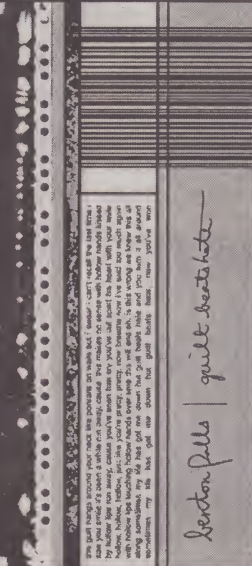 the guilt hangs around your neck like portraits on walls but i swear i can't recall the last time i
saw you smile. it's been a while run away, cause this makes no sense with hollow hands kissed
by hollow lips run away, cause you've been has try you've out spent his heart with your smile
hollow, hollow, hollow, just like you're pretty, pretty, now breathe now i've said too much again
with hollow lips touching hollow hands over time this will end oh, is this wrong we knew this all
along sometimes, my life has got me down but guilt beats hate and you turn it all around
sometimes my life has got me down but guilt beats hate, now you've won
benton falls | guilt beats hate